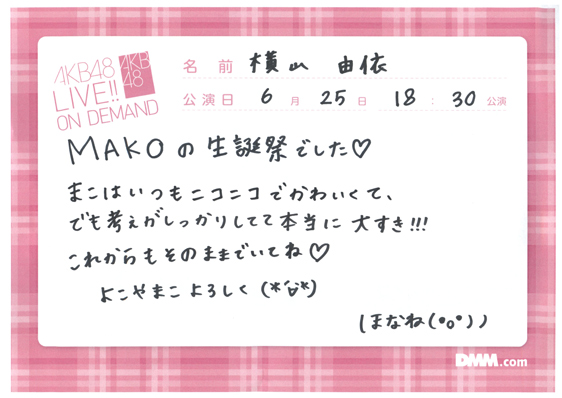 AKB48
LIVE!!
ON DEMAND
AKB
48
名前 横山 由依
公演日 6月25日 18:30公演
MAKOの生誕祭でした♡
まこはいつもニコニコでかわいくて、
でも考えがしっかりしてて本当に大すき!!!
これからもそのままでいてね♡
よこやまこよろしく(*'ω'*)
ほなね(°o°))
DMM.com